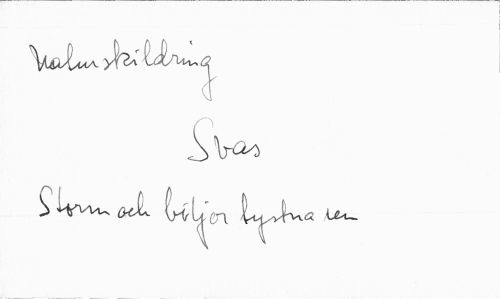 Naturskildring
Svas
Storm och böljor tystna ren